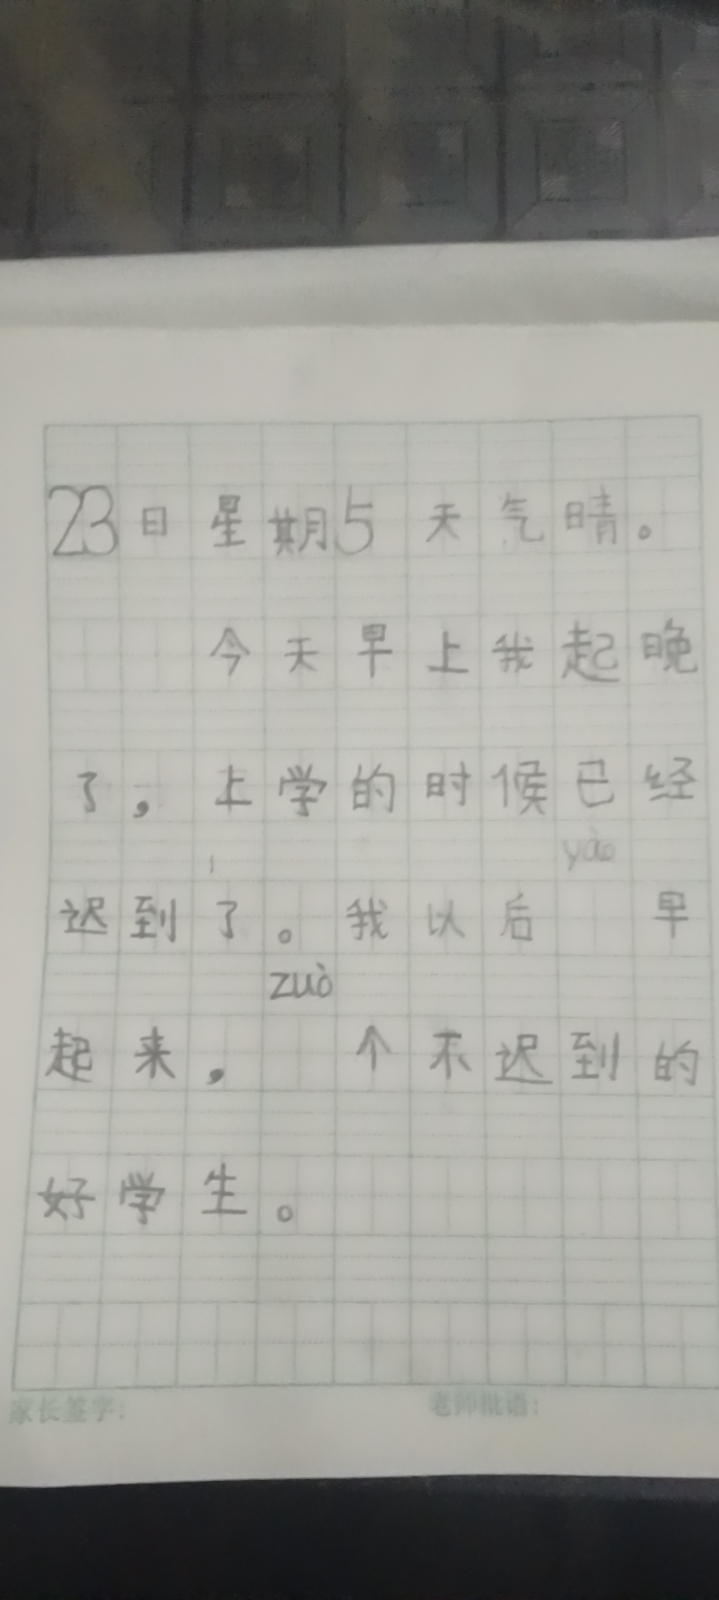 23日星期5天气晴。
今天早上我起晚
了，上学的时候已经
yào
迟到了。我以后 早
zuò
起来， 个不迟到的
好学生。
家长签字： 老师批语：